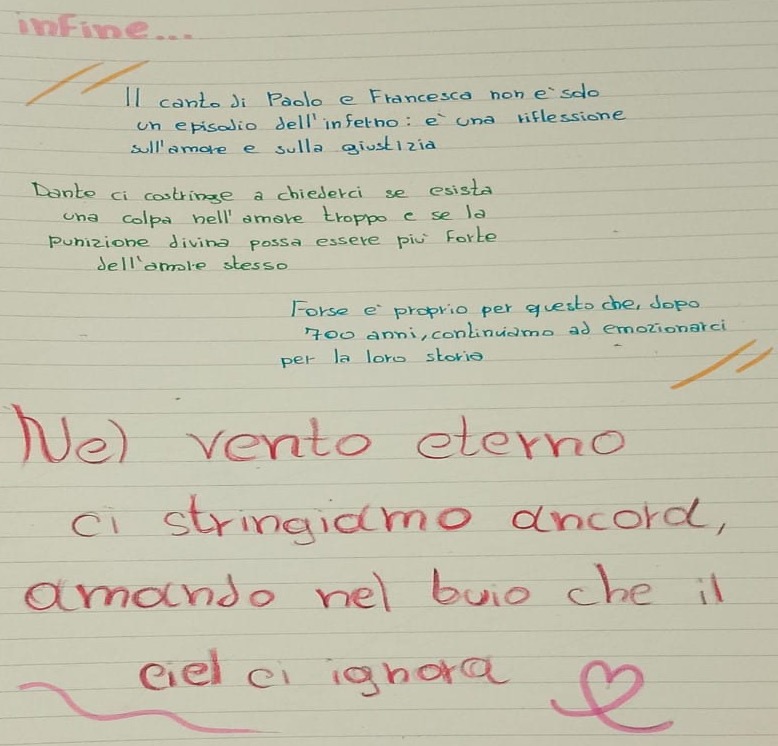 infine...
Il canto di Paolo e Francesca non è solo
un episodio dell'inferno: è una riflessione
sull'amore e sulla giustizia
Dante ci costringe a chiederci se esista
una colpa nell'amare troppo e se la
punizione divina possa essere più forte
dell'amore stesso
Forse è proprio per questo che, dopo
700 anni, continuiamo ad emozionarci
per la loro storia
Nel vento eterno
ci stringiamo ancora,
amando nel buio che il
ciel ci ignora